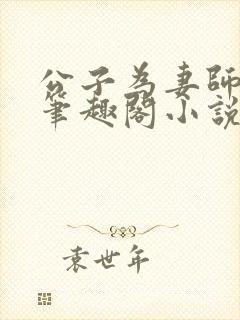 公子為妻師
筆趣閣小說
袁世年